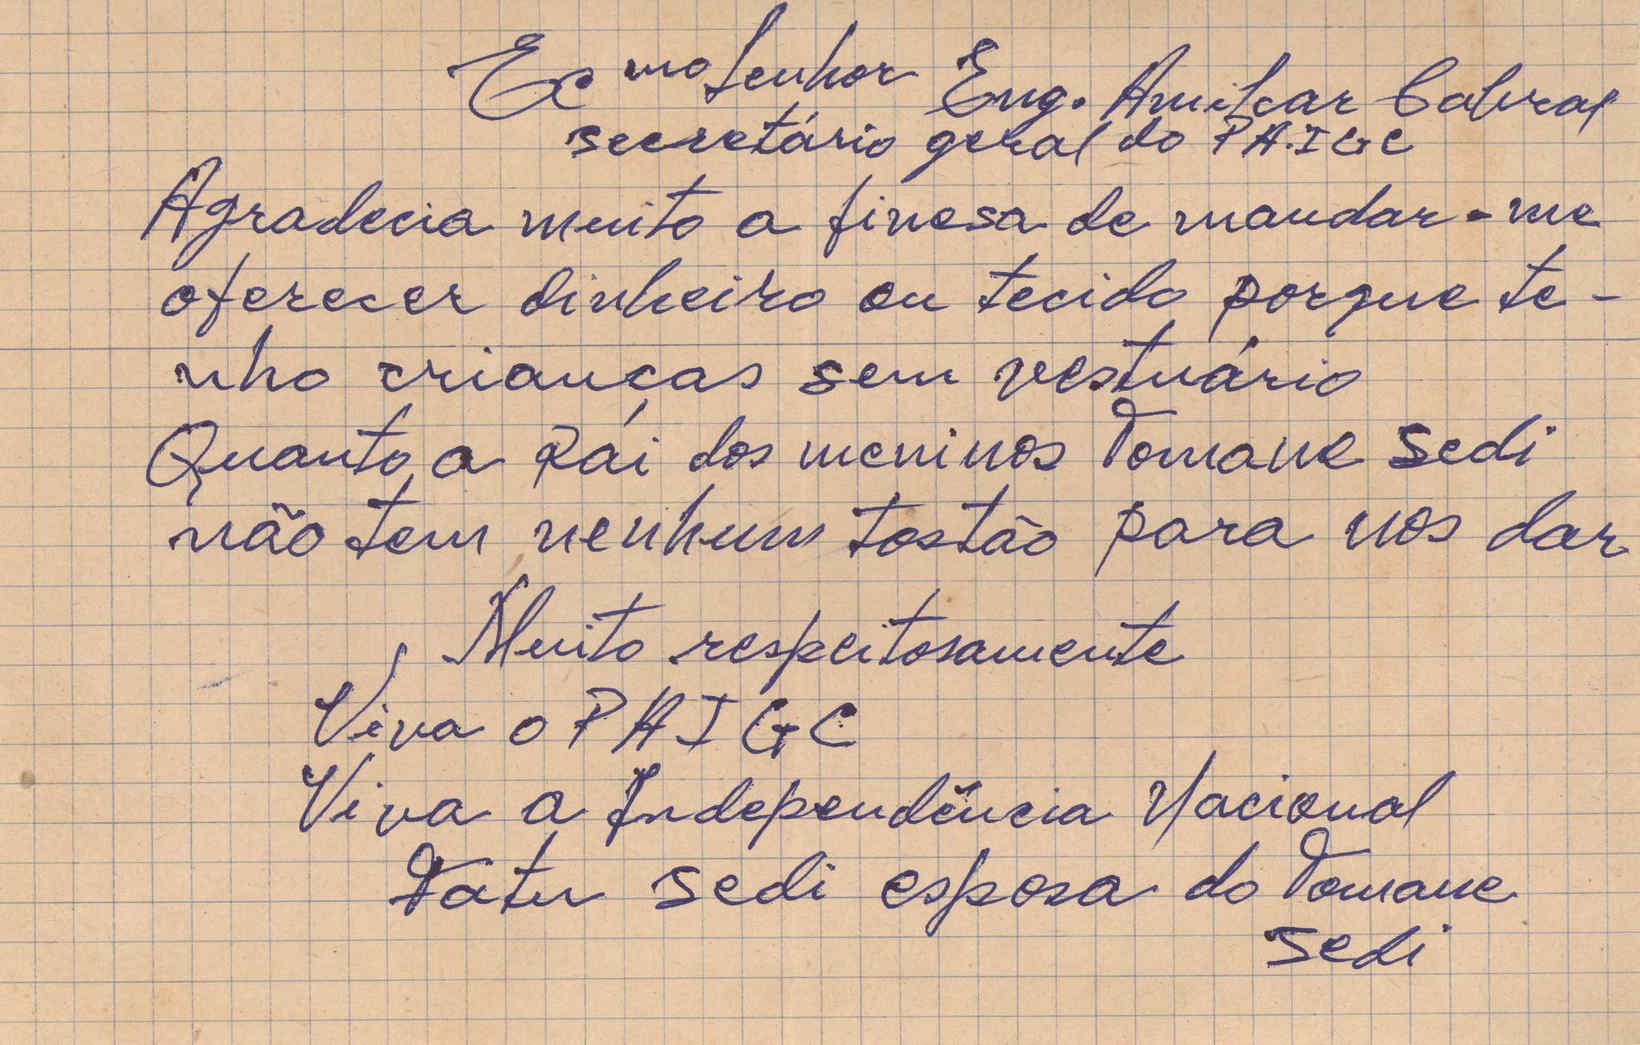 Ecmo Senhor Eng. Amilcar Cabral
secretário geral do PA.IGC
Agradecia muito a finesa de mandar-me
oferecer dinheiro ou tecido porque te-
nho crianças sem vestuário
Quanto a Pái dos meninos Tomane Sedi
não tem nenhum tostão para nos dar
Muito respeitosamente
Viva o PAIGC
Viva a Independência Nacional
Fatu Sedi esposa do Tomane
Sedi